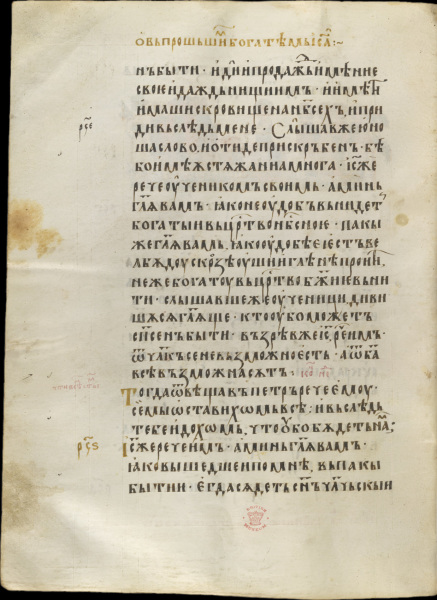 овъпрошьшїи богатѣмь іс҃а :~
нъ быти · иди и продаждь имѣние
своеи даждь нищиимъ · и имѣти
имаши скровище на нб҃сехъ, и при
ди въслѣдь мене · Слышавже юно
рч҃е
ша слово, ѿтиде прискръбенъ · бѣ
бо имѣѧ стѧжаниа многа · іс҃же
рече оученикомъ своимъ · аминь
гл҃ѧ вамъ · ꙗко неоудобъ вънидет
богатыи въ цр҃тво нб҃сное · пакы
же гл҃ѧ вамь, ꙗко оудобѣе есть ве
льбѫдоу сквозѣ оуши иглѣнѣ проити,
неже богатоу въ цр҃тво бж҃ие въни
ти · слышавшеже оученици, диви
шѧсѧ гл҃ѧще · кто оубо можетъ
сп҃сенъ быти · възрѣвже іс҃, рече имъ ·
ѿ чл҃къ се невъзможно есть · а ѿ б҃а
всѣ възможна сѫть ·
Тогда ѿвѣщавъ петръ рече емоу ·
се мы ѡставихѡмь всѣ, и въ слѣдь
тебе идохѡмь, что оубо бѫдеть намъ;
рч҃ѕ
іс҃же рече имъ · аминь гл҃ѧ вамъ ·
ꙗко вы шедшеи по мнѣ, въ пакы
бытии · егда сѧдеть сн҃ъ чл҃чьскыи